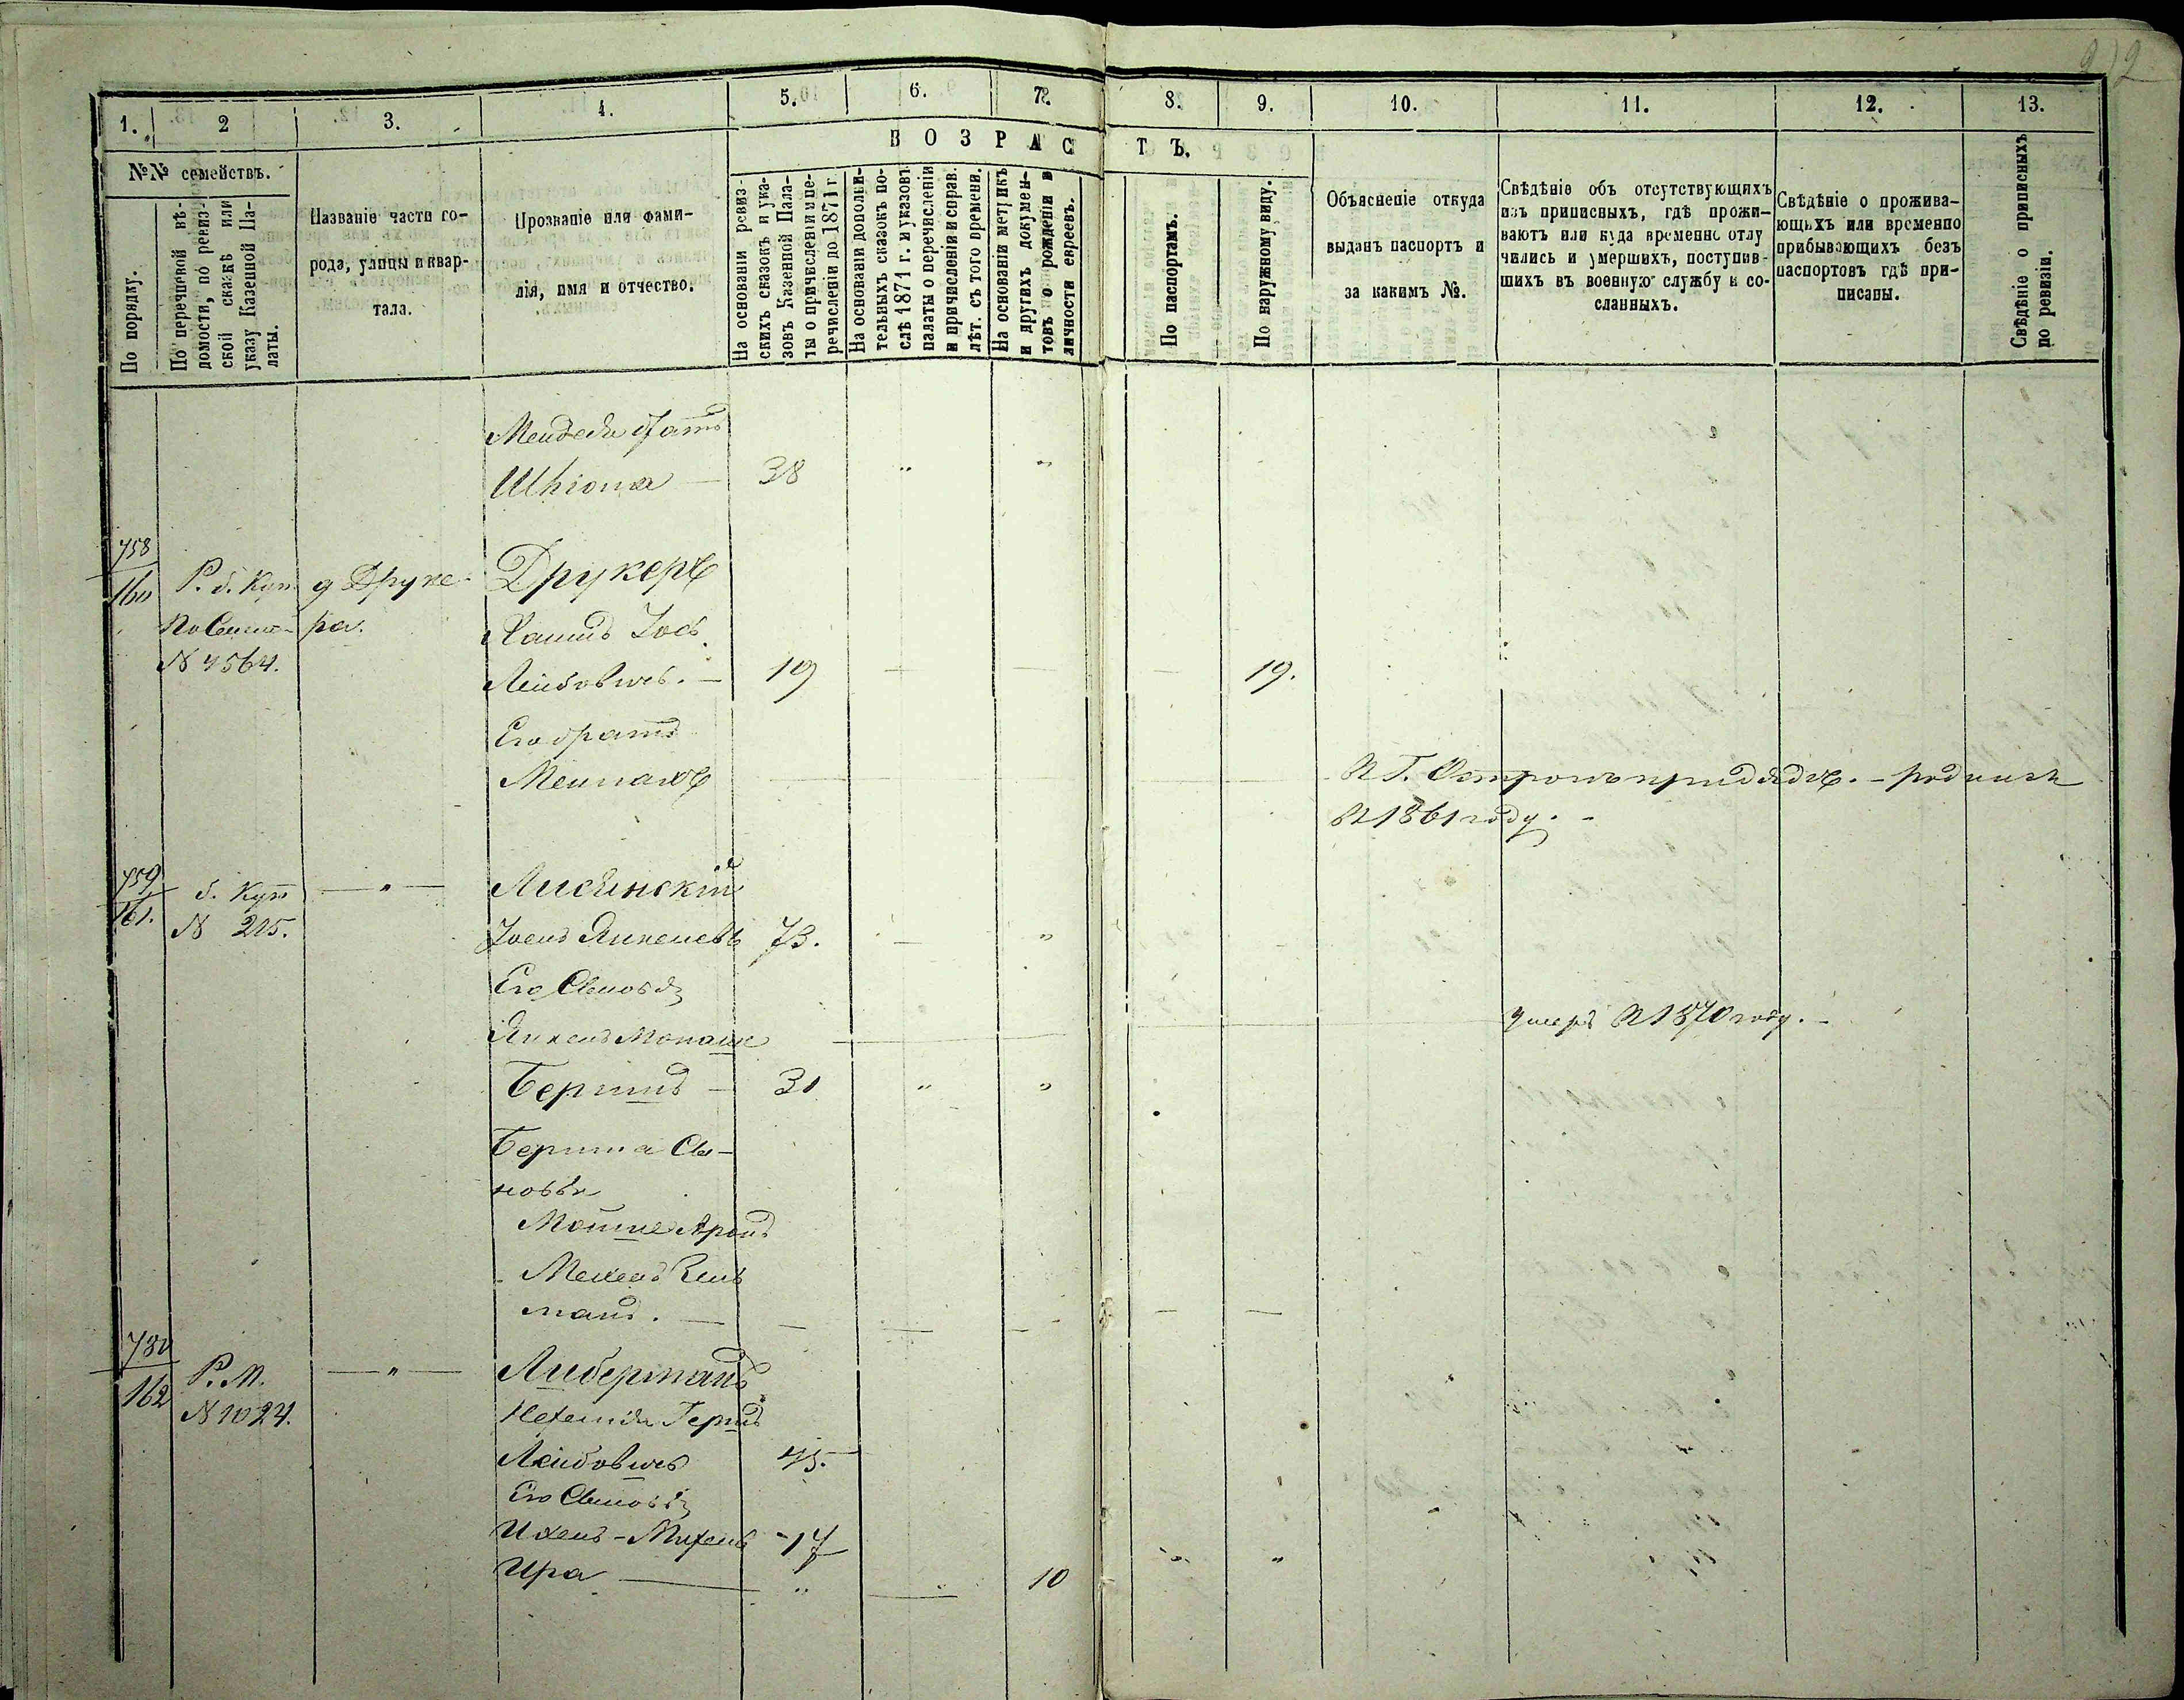 212
1.
2
3.
4.
5.
6.
7.
8.
9.
10.
11.
12.
13.
№№ семействъ.
В О З Р А С Т Ъ.
По порядку.
По перечневой вѣ-
домости, по ревиз-
ской сказкѣ или
указу Казенной Па-
латы.
Названіе части го-
рода, улицы и квар-
тала.
Прозваніе или фами-
лія, имя и отчество.
На основаніи ревиз-
скихъ сказокъ и ука-
зовъ Казенной Пала-
ты о причисленіи и пе-
речисленіи до 1871 г.
На основаніи дополни-
тельныхъ сказокъ по-
слѣ 1871 г. и указовъ
палаты о перечисленіи
и причисленіи и справ.
лѣт. съ того времени.
На основаніи метрикъ
и другихъ докумен-
товъ о рожденіи и
личности евреевъ.
По паспортамъ.
По наружному виду.
Объясненіе откуда
выданъ паспортъ и
за какимъ №.
Свѣдѣніе объ отсутствующихъ
изъ приписныхъ, гдѣ прожи-
ваютъ или куда временно отлу
чились и умершихъ, поступив-
шихъ въ военную службу и со-
сланныхъ.
Свѣдѣніе о прожива-
ющихъ или временно
прибывающихъ безъ
паспортовъ гдѣ при-
писаны.
Свѣдѣніе о приписныхъ
по ревизіи.
Шліома — 38 " "
758
160 Р. б. Куп. д Друке- Друкеръ
ра. Хаимъ Іось
N 4564. Лейбовичъ. — 19 — — — 19.
Его братъ
родился
въ 1861 году. -
759
161. б. Куп — " — Лисянскій
N 215. Янкелевъ 73. — "
Его Сыновья
Умеръ въ 1870 году. -
Бериша — 31 " "
Бериша Сы-
новья
Мошке Аронъ
Зель
манъ. — — — — — —
780
162 Р. М. — " — Либерманъ
N 1024. Нехемія Гершъ
Лейбовичъ 45.
Его Сыновья
Ихель-Михель -17
Сра — " — " 10 " "